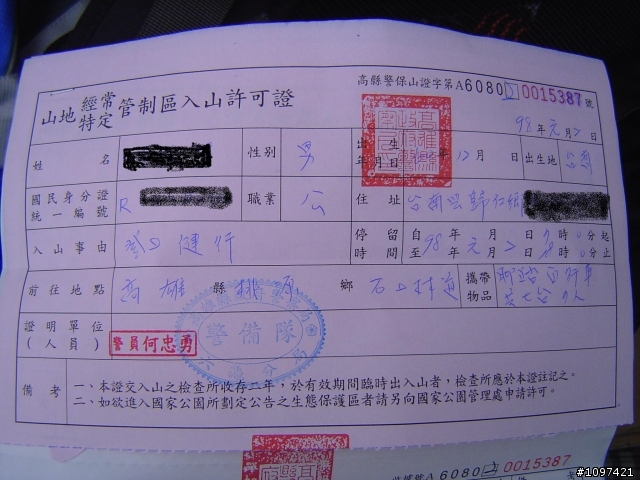 高縣警保山證字第A6080 0015387號
山地 經常 特定 管制區入山許可證
98年元月2日
姓名 性別 男 出生年月日 12月 日 出生地 台南
國民身分證統一編號 R 職業 公 住址 台南縣歸仁鄉
入山事由 登山健行 停留時間 自98年元月2日 時0分起 至 時0分止
前往地點 高雄縣桃源鄉 石山林道 攜帶物品
證明單位(人員) 警員何忠勇
警備隊
備考 一、本證交入山之檢查所收存二年,於有效期間臨時出入山者,檢查所應於本證註記之。
二、如欲進入國家公園所劃定公告之生態保護區者請另向國家公園管理處申請許可。
A6080 0015387
#1097421